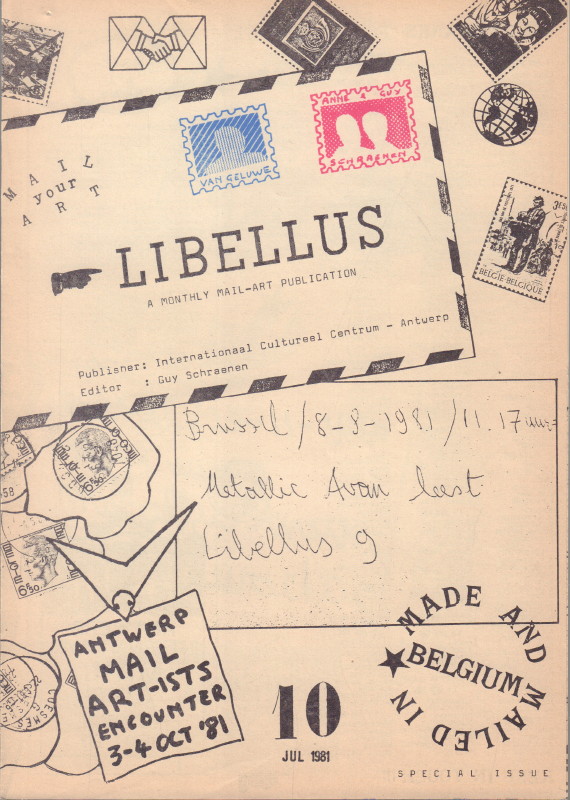 VAN GELUWE
ANNE & GUY
SCHRAENEN
MAIL
your
ART
LIBELLUS
A MONTHLY MAIL-ART PUBLICATION
Publisher: Internationaal Cultureel Centrum - Antwerp
Editor : Guy Schraenen
3F50
BELGIE-BELGIQUE
Brussel / 8-8-1981 / 11.17 uur
Metallic Avan leest
Libellus 9
6F50
6F50
CUESMES
ANTWERP
MAIL
ART-ISTS
ENCOUNTER
3-4 OCT '81
MADE AND MAILED IN
BELGIUM
10
JUL 1981
SPECIAL ISSUE